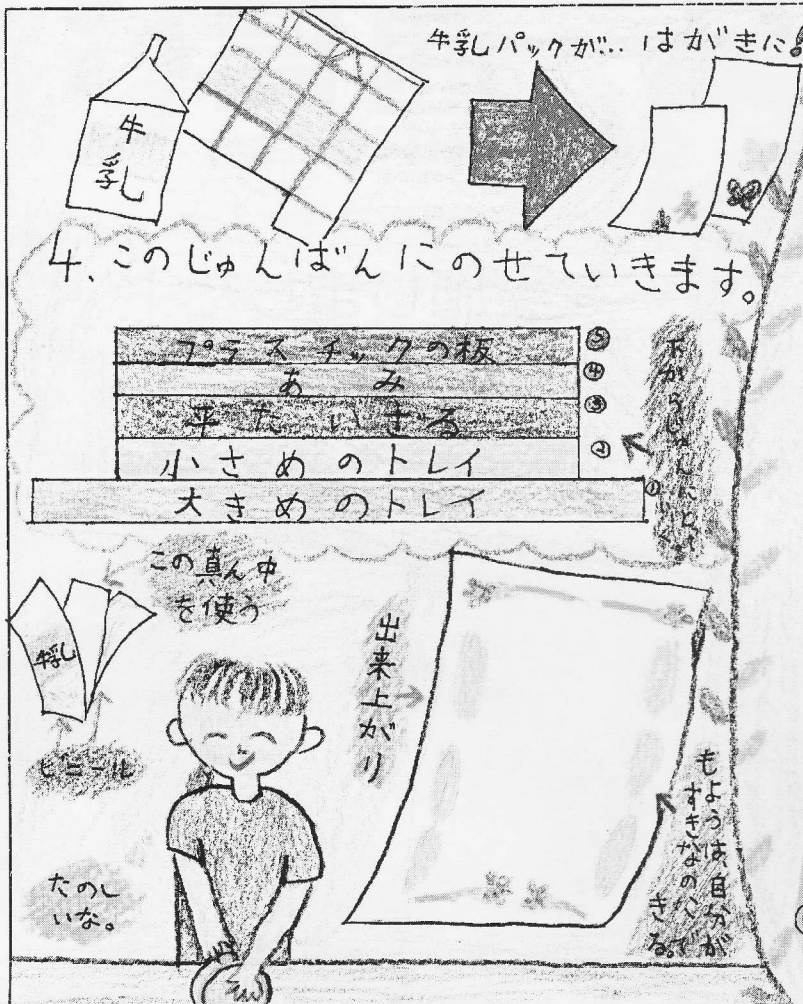 牛乳パックが‥はがきに!
牛
乳
4、このじゅんばんにのせていきます。
プラスチックの板 ⑤
あみ ④
平たいざる ③
小さめのトレイ ②
大きめのトレイ ①
下からじゅんに
この真ん中
を使う
牛乳
ビニール
出来上がり
もようは、自分が
すきなのに
できる。
たのし
いな。